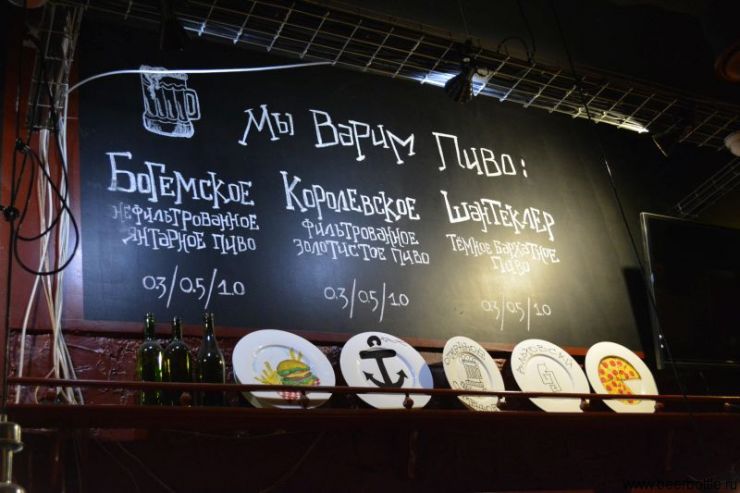 Мы Варим Пиво:
Богемское
нефильтрованное
янтарное пиво
0.3/0.5/1.0
Королевское
фильтрованное
золотистое пиво
0.3/0.5/1.0
Шантеклер
тёмное бархатное
пиво
0.3/0.5/1.0
www.beerbottle.ru